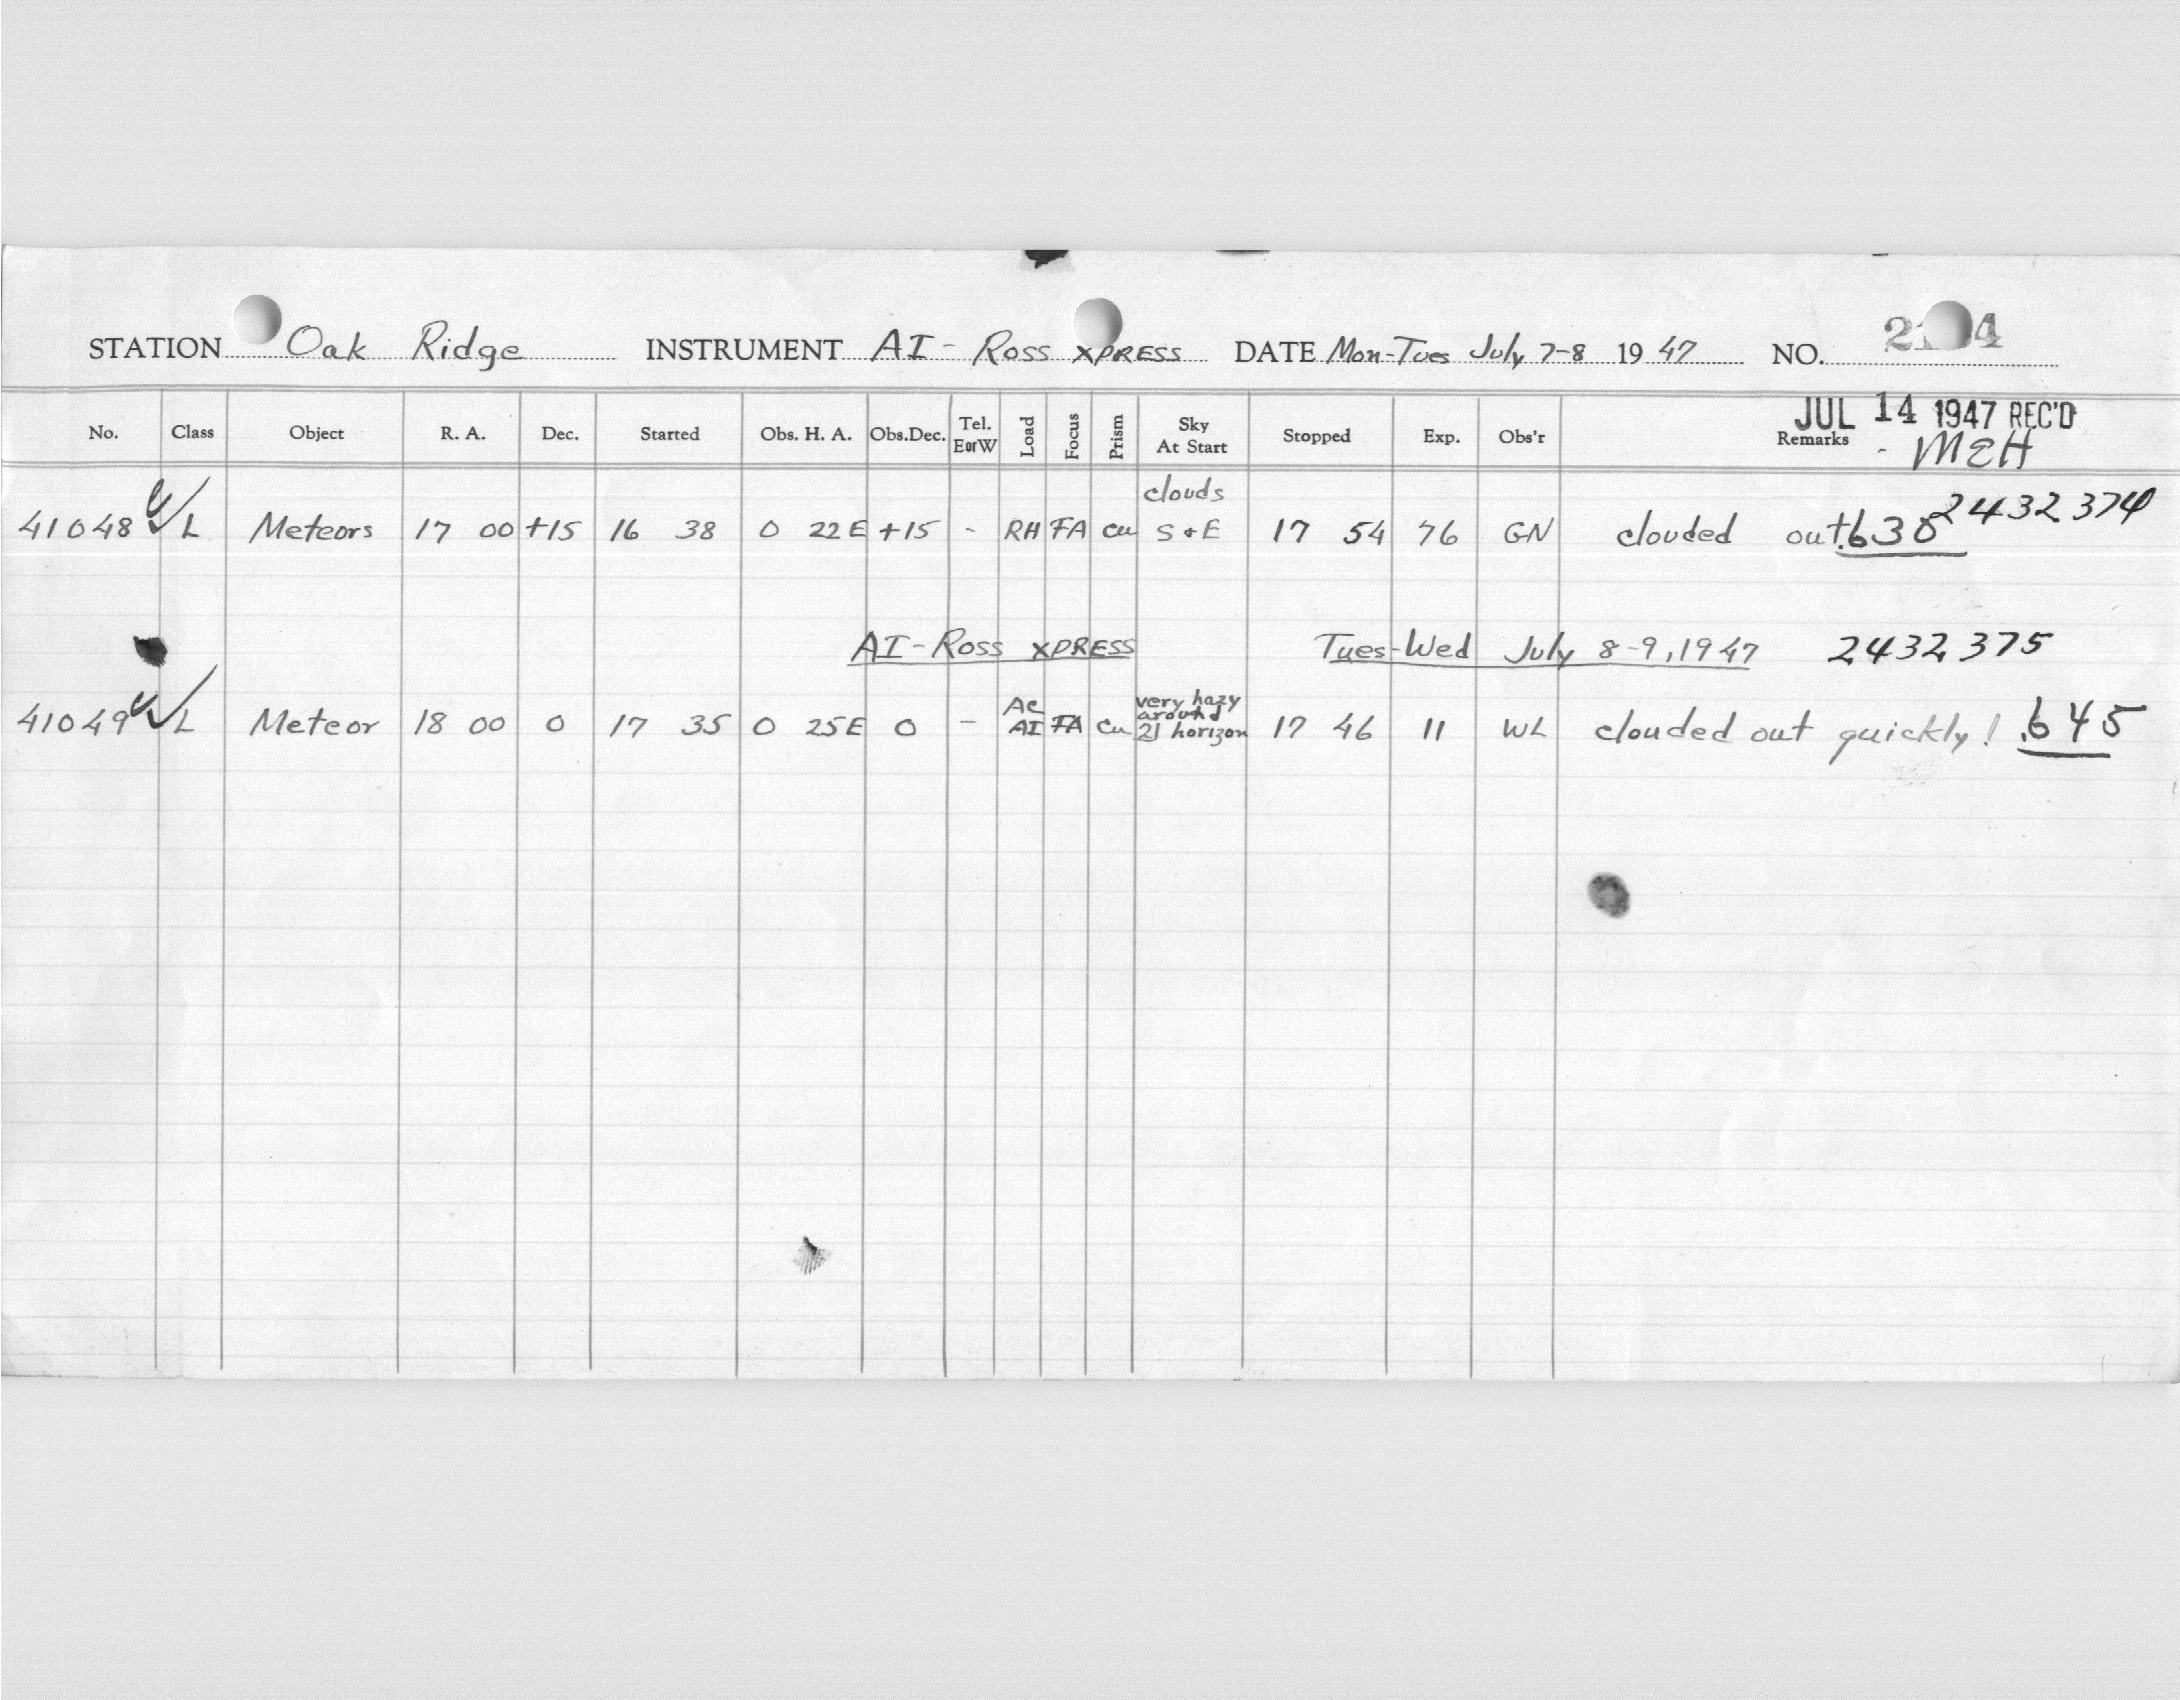 STATION Oak Ridge INSTRUMENT AI - Ross XPRESS DATE Mon-Tues July 7-8 19 47 NO.
JUL 14 1947 REC'D
No. Class Object R. A. Dec. Started Obs. H. A. Obs.Dec. Tel. EorW Load Focus Prism Sky At Start Stopped Exp. Obs'r Remarks - MEH
41048 L Meteors 17 00 +15 16 38 0 22 E +15 - RH FA cu clouds S + E 17 54 76 GN clouded out .630 2432374
AI - Ross XPRESS Tues-Wed July 8-9, 1947 2432375
41049 L Meteor 18 00 0 17 35 0 25 E 0 - AC AI FA cu very hazy around horizon 17 46 11 WL clouded out quickly! .645